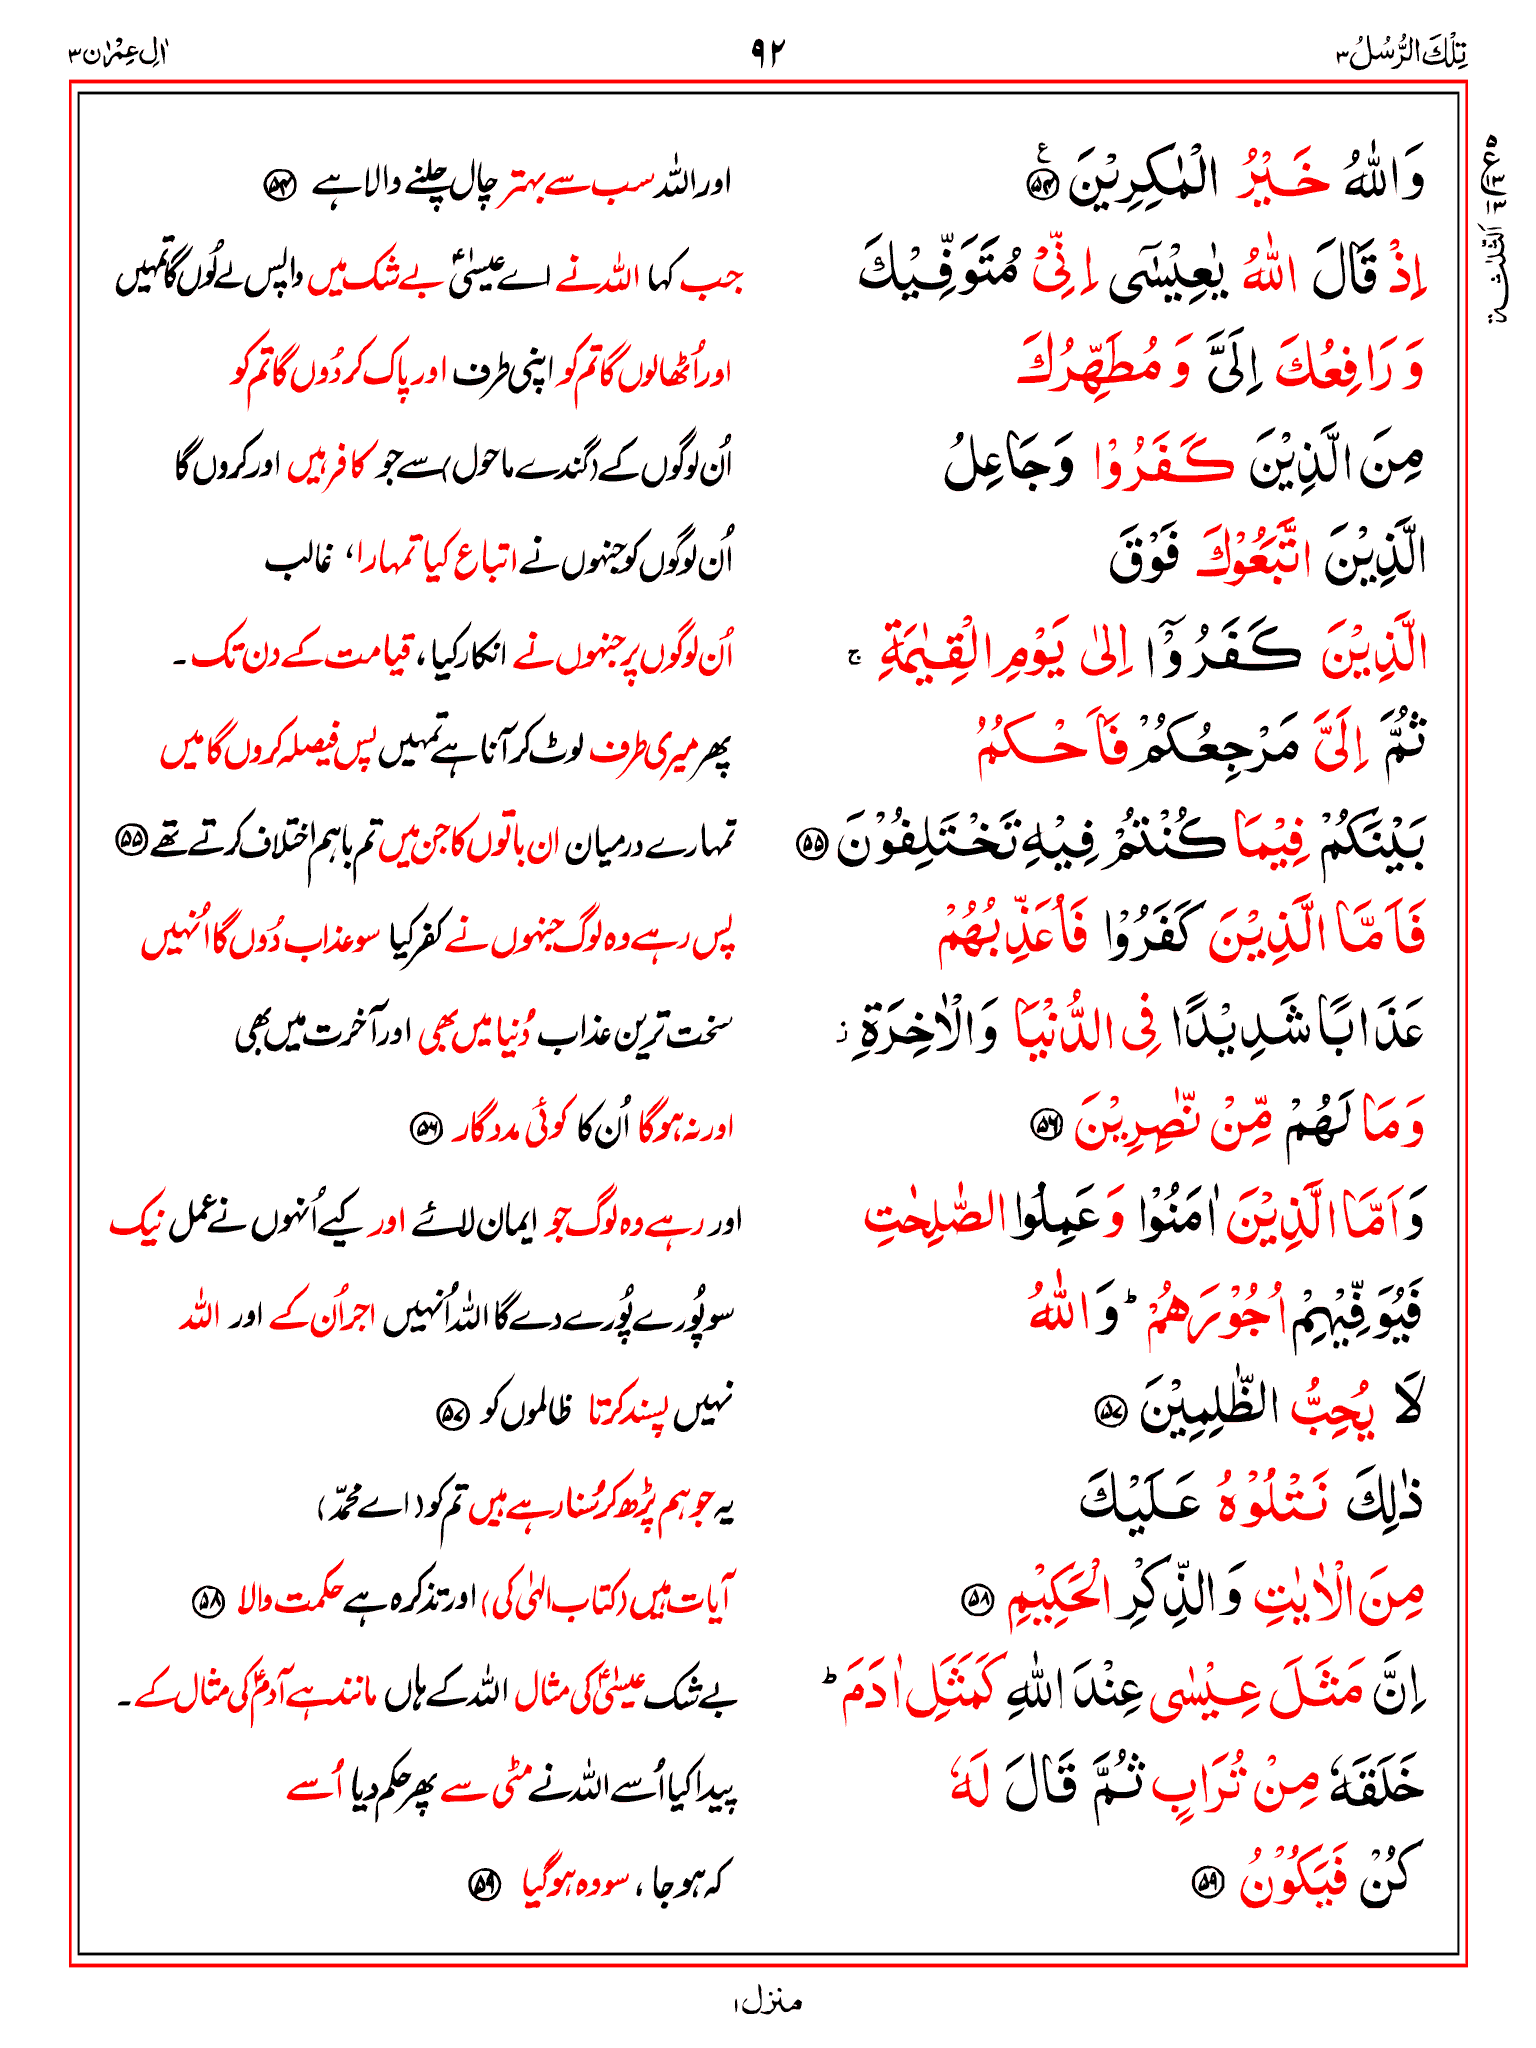 تِلْكَ الرُّسُلُ ٣
٩٢
اٰلِ عِمْرٰن ٣
وَاللّٰهُ خَيْرُ الْمٰكِرِيْنَ ۝٥٤ ع
اور اللہ سب سے بہتر چال چلنے والا ہے ۝٥٤
اِذْ قَالَ اللّٰهُ يٰعِيْسٰٓى اِنِّىْ مُتَوَفِّيْكَ
جب کہا اللہ نے اے عیسیٰؑ بے شک میں واپس لے لُوں گا تمہیں
وَ رَافِعُكَ اِلَىَّ وَ مُطَهِّرُكَ
اور اُٹھا لوں گا تم کو اپنی طرف اور پاک کر دُوں گا تم کو
مِنَ الَّذِيْنَ كَفَرُوْا وَجَاعِلُ
اُن لوگوں کے (گندے ماحول) سے جو کافر ہیں اور کروں گا
الَّذِيْنَ اتَّبَعُوْكَ فَوْقَ
اُن لوگوں کو جنہوں نے اتباع کیا تمہارا، غالب
الَّذِيْنَ كَفَرُوْٓا اِلٰى يَوْمِ الْقِيٰمَةِ ۚ
اُن لوگوں پر جنہوں نے انکار کیا، قیامت کے دن تک۔
ثُمَّ اِلَىَّ مَرْجِعُكُمْ فَاَحْكُمُ
پھر میری طرف لوٹ کر آنا ہے تمہیں پس فیصلہ کروں گا میں
بَيْنَكُمْ فِيْمَا كُنْتُمْ فِيْهِ تَخْتَلِفُوْنَ ۝٥٥
تمہارے درمیان ان باتوں کا جن میں تم باہم اختلاف کرتے تھے ۝٥٥
فَاَمَّا الَّذِيْنَ كَفَرُوْا فَاُعَذِّبُهُمْ
پس رہے وہ لوگ جنہوں نے کفر کیا سو عذاب دُوں گا اُنہیں
عَذَابًا شَدِيْدًا فِى الدُّنْيَا وَالْاٰخِرَةِ ز
سخت ترین عذاب دُنیا میں بھی اور آخرت میں بھی
وَمَا لَهُمْ مِّنْ نّٰصِرِيْنَ ۝٥٦
اور نہ ہوگا اُن کا کوئی مددگار ۝٥٦
وَاَمَّا الَّذِيْنَ اٰمَنُوْا وَعَمِلُوا الصّٰلِحٰتِ
اور رہے وہ لوگ جو ایمان لائے اور کیے اُنہوں نے عمل نیک
فَيُوَفِّيْهِمْ اُجُوْرَهُمْ ؕ وَ اللّٰهُ
سو پُورے پُورے دے گا اللہ اُنہیں اجر اُن کے اور اللہ
لَا يُحِبُّ الظّٰلِمِيْنَ ۝٥٧
نہیں پسند کرتا ظالموں کو ۝٥٧
ذٰلِكَ نَتْلُوْهُ عَلَيْكَ
یہ جو ہم پڑھ کر سُنا رہے ہیں تم کو (اے محمدؐ)
مِنَ الْاٰيٰتِ وَ الذِّكْرِ الْحَكِيْمِ ۝٥٨
آیات ہیں (کتاب الٰہی کی) اور تذکرہ ہے حکمت والا ۝٥٨
اِنَّ مَثَلَ عِيْسٰى عِنْدَ اللّٰهِ كَمَثَلِ اٰدَمَ ؕ
بے شک عیسیٰؑ کی مثال اللہ کے ہاں مانند ہے آدمؑ کی مثال کے۔
خَلَقَهٗ مِنْ تُرَابٍ ثُمَّ قَالَ لَهٗ
پیدا کیا اُسے اللہ نے مٹی سے پھر حکم دیا اُسے
كُنْ فَيَكُوْنُ ۝٥٩
کہ ہو جا، سو وہ ہوگیا ۝٥٩
الثلٰثة
منزل ١